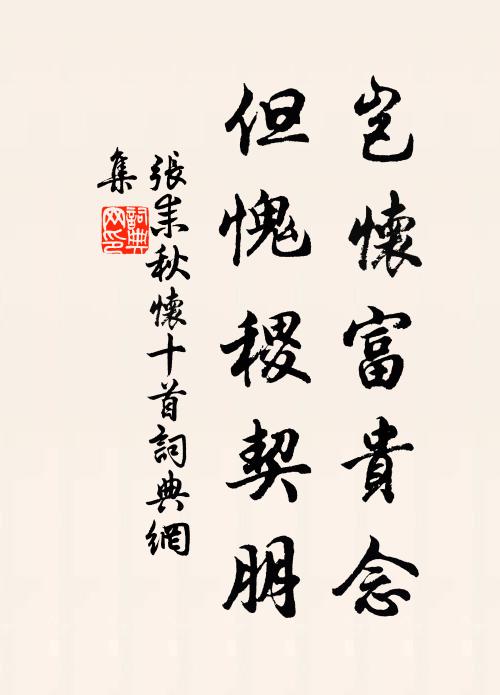 豈懷富貴念
但愧稷契朋
張耒秋懷十首詞典網
集
詞典網印